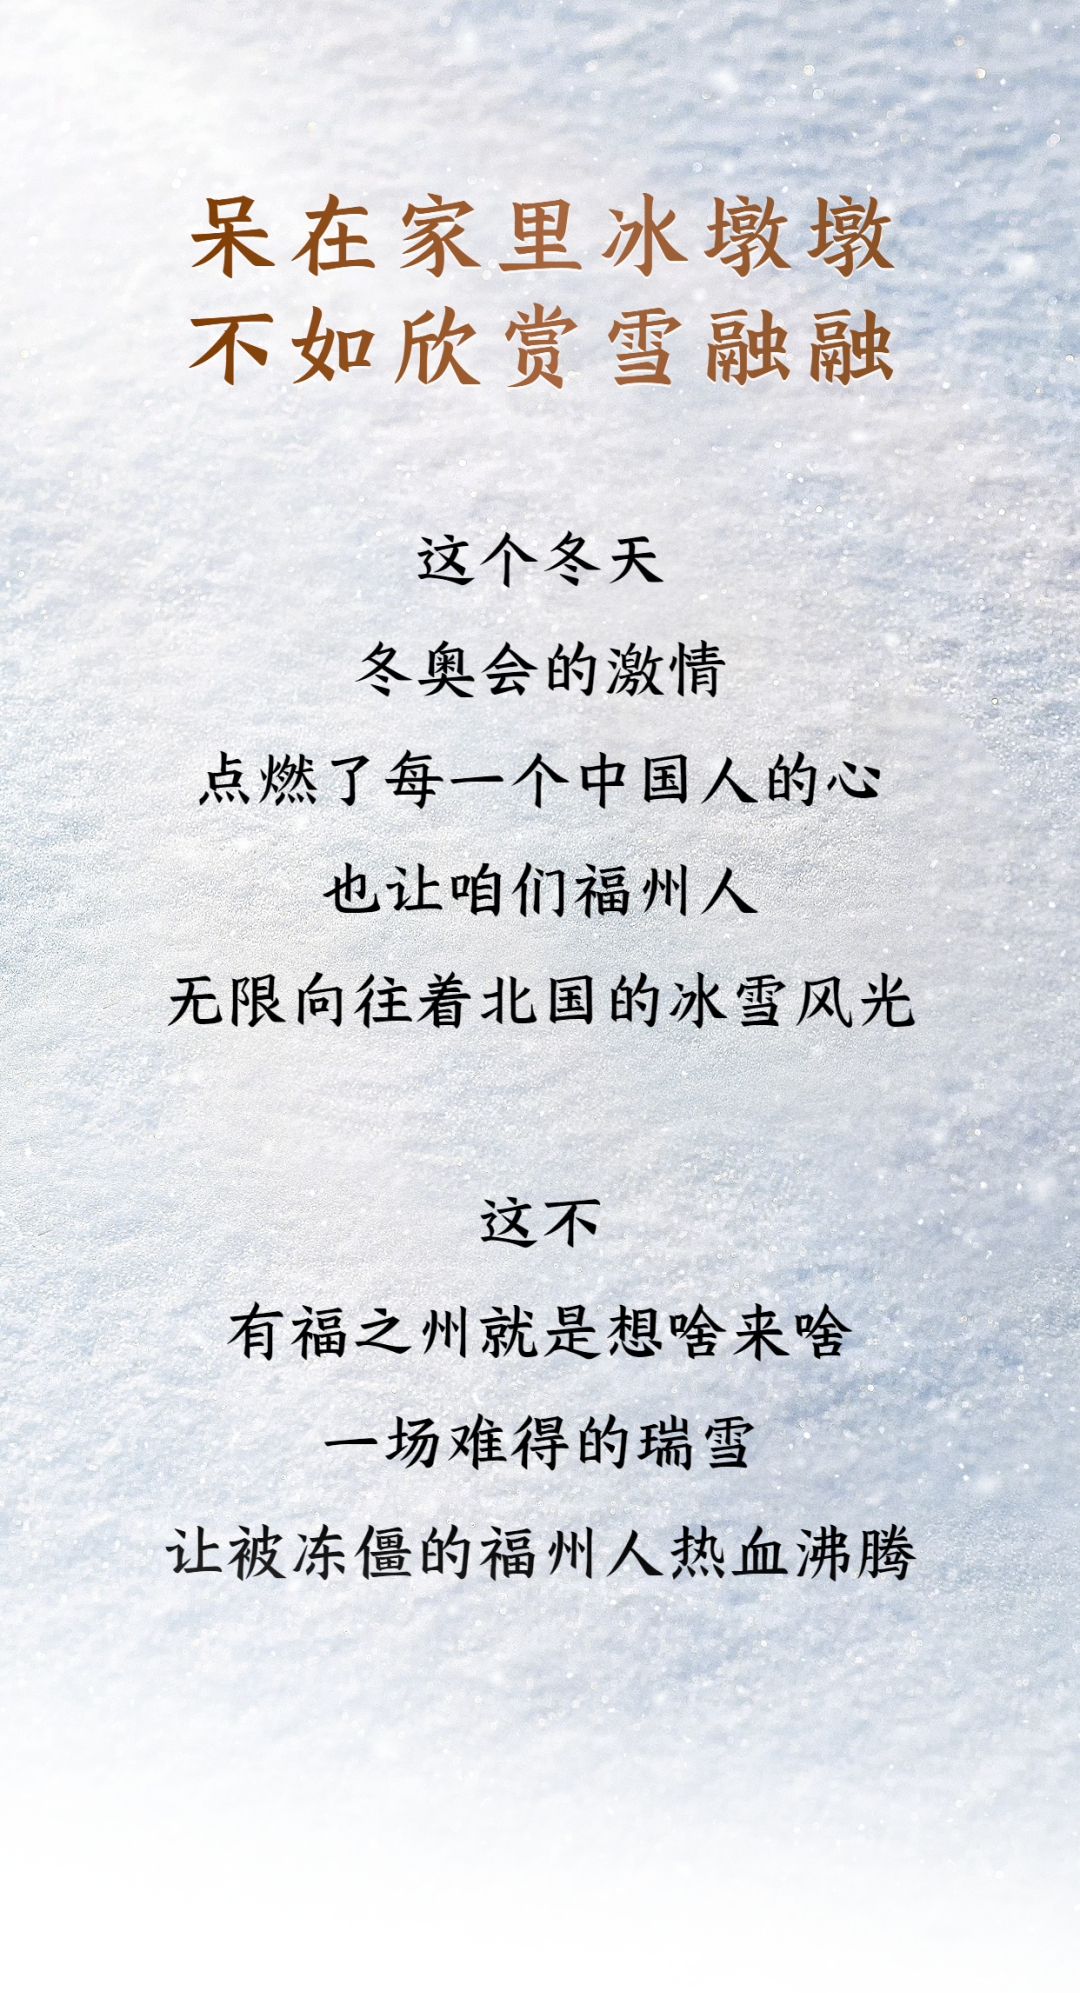 呆在家里冰墩墩
不如欣赏雪融融
这个冬天
冬奥会的激情
点燃了每一个中国人的心
也让咱们福州人
无限向往着北国的冰雪风光
这不
有福之州就是想啥来啥
一场难得的瑞雪
让被冻僵的福州人热血沸腾